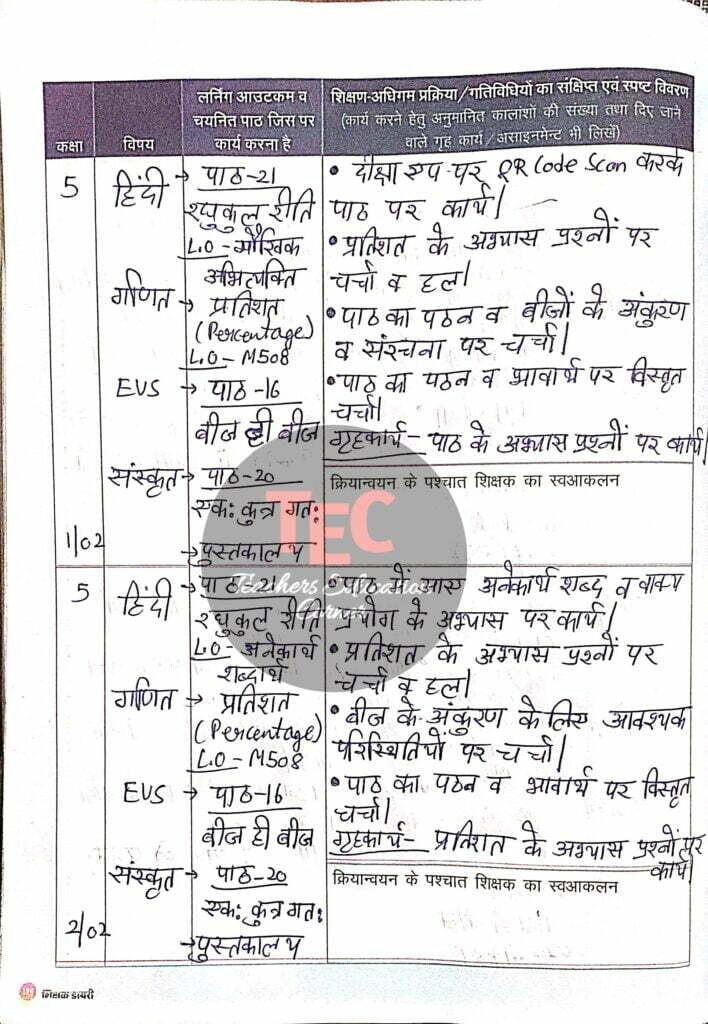 कक्षा
विषय
लर्निंग आउटकम व
चयनित पाठ जिस पर
कार्य करना है
शिक्षण-अधिगम प्रक्रिया/गतिविधियों का संक्षिप्त एवं स्पष्ट विवरण
(कार्य करने हेतु अनुमानित कालांशों की संख्या तथा दिए जाने
वाले गृह कार्य/असाइनमेन्ट भी लिखें)
5
हिंदी → पाठ-21
रघुकुल रीति
L.O - मौखिक
अभिव्यक्ति
गणित → प्रतिशत
(Percentage)
L.O - M508
EVS → पाठ-16
बीज ही बीज
संस्कृत → पाठ-20
एक: कुत्र गत:
→ पुस्तकालय
1/02
• दीक्षा एप पर QR Code Scan करके
पाठ पर कार्य।
• प्रतिशत के अभ्यास प्रश्नों पर
चर्चा व हल।
• पाठ का पठन व बीजों के अंकुरण
व संरचना पर चर्चा।
• पाठ का पठन व भावार्थ पर विस्तृत
चर्चा।
गृहकार्य - पाठ के अभ्यास प्रश्नों पर कार्य।
क्रियान्वयन के पश्चात शिक्षक का स्वआकलन
TEC
Teachers Education
Corner
5
हिंदी → पाठ-21
रघुकुल रीति
L.O - अनेकार्थ
शब्दार्थ
गणित → प्रतिशत
(Percentage)
L.O - M508
EVS → पाठ-16
बीज ही बीज
संस्कृत → पाठ-20
एक: कुत्र गत:
→ पुस्तकालय
2/02
• पाठ में आए अनेकार्थ शब्द व वाक्य
प्रयोग के अभ्यास पर कार्य।
• प्रतिशत के अभ्यास प्रश्नों पर
चर्चा व हल।
• बीज के अंकुरण के लिए आवश्यक
परिस्थितियों पर चर्चा।
• पाठ का पठन व भावार्थ पर विस्तृत
चर्चा।
गृहकार्य - प्रतिशत के अभ्यास प्रश्नों पर
कार्य।
क्रियान्वयन के पश्चात शिक्षक का स्वआकलन
शिक्षक डायरी